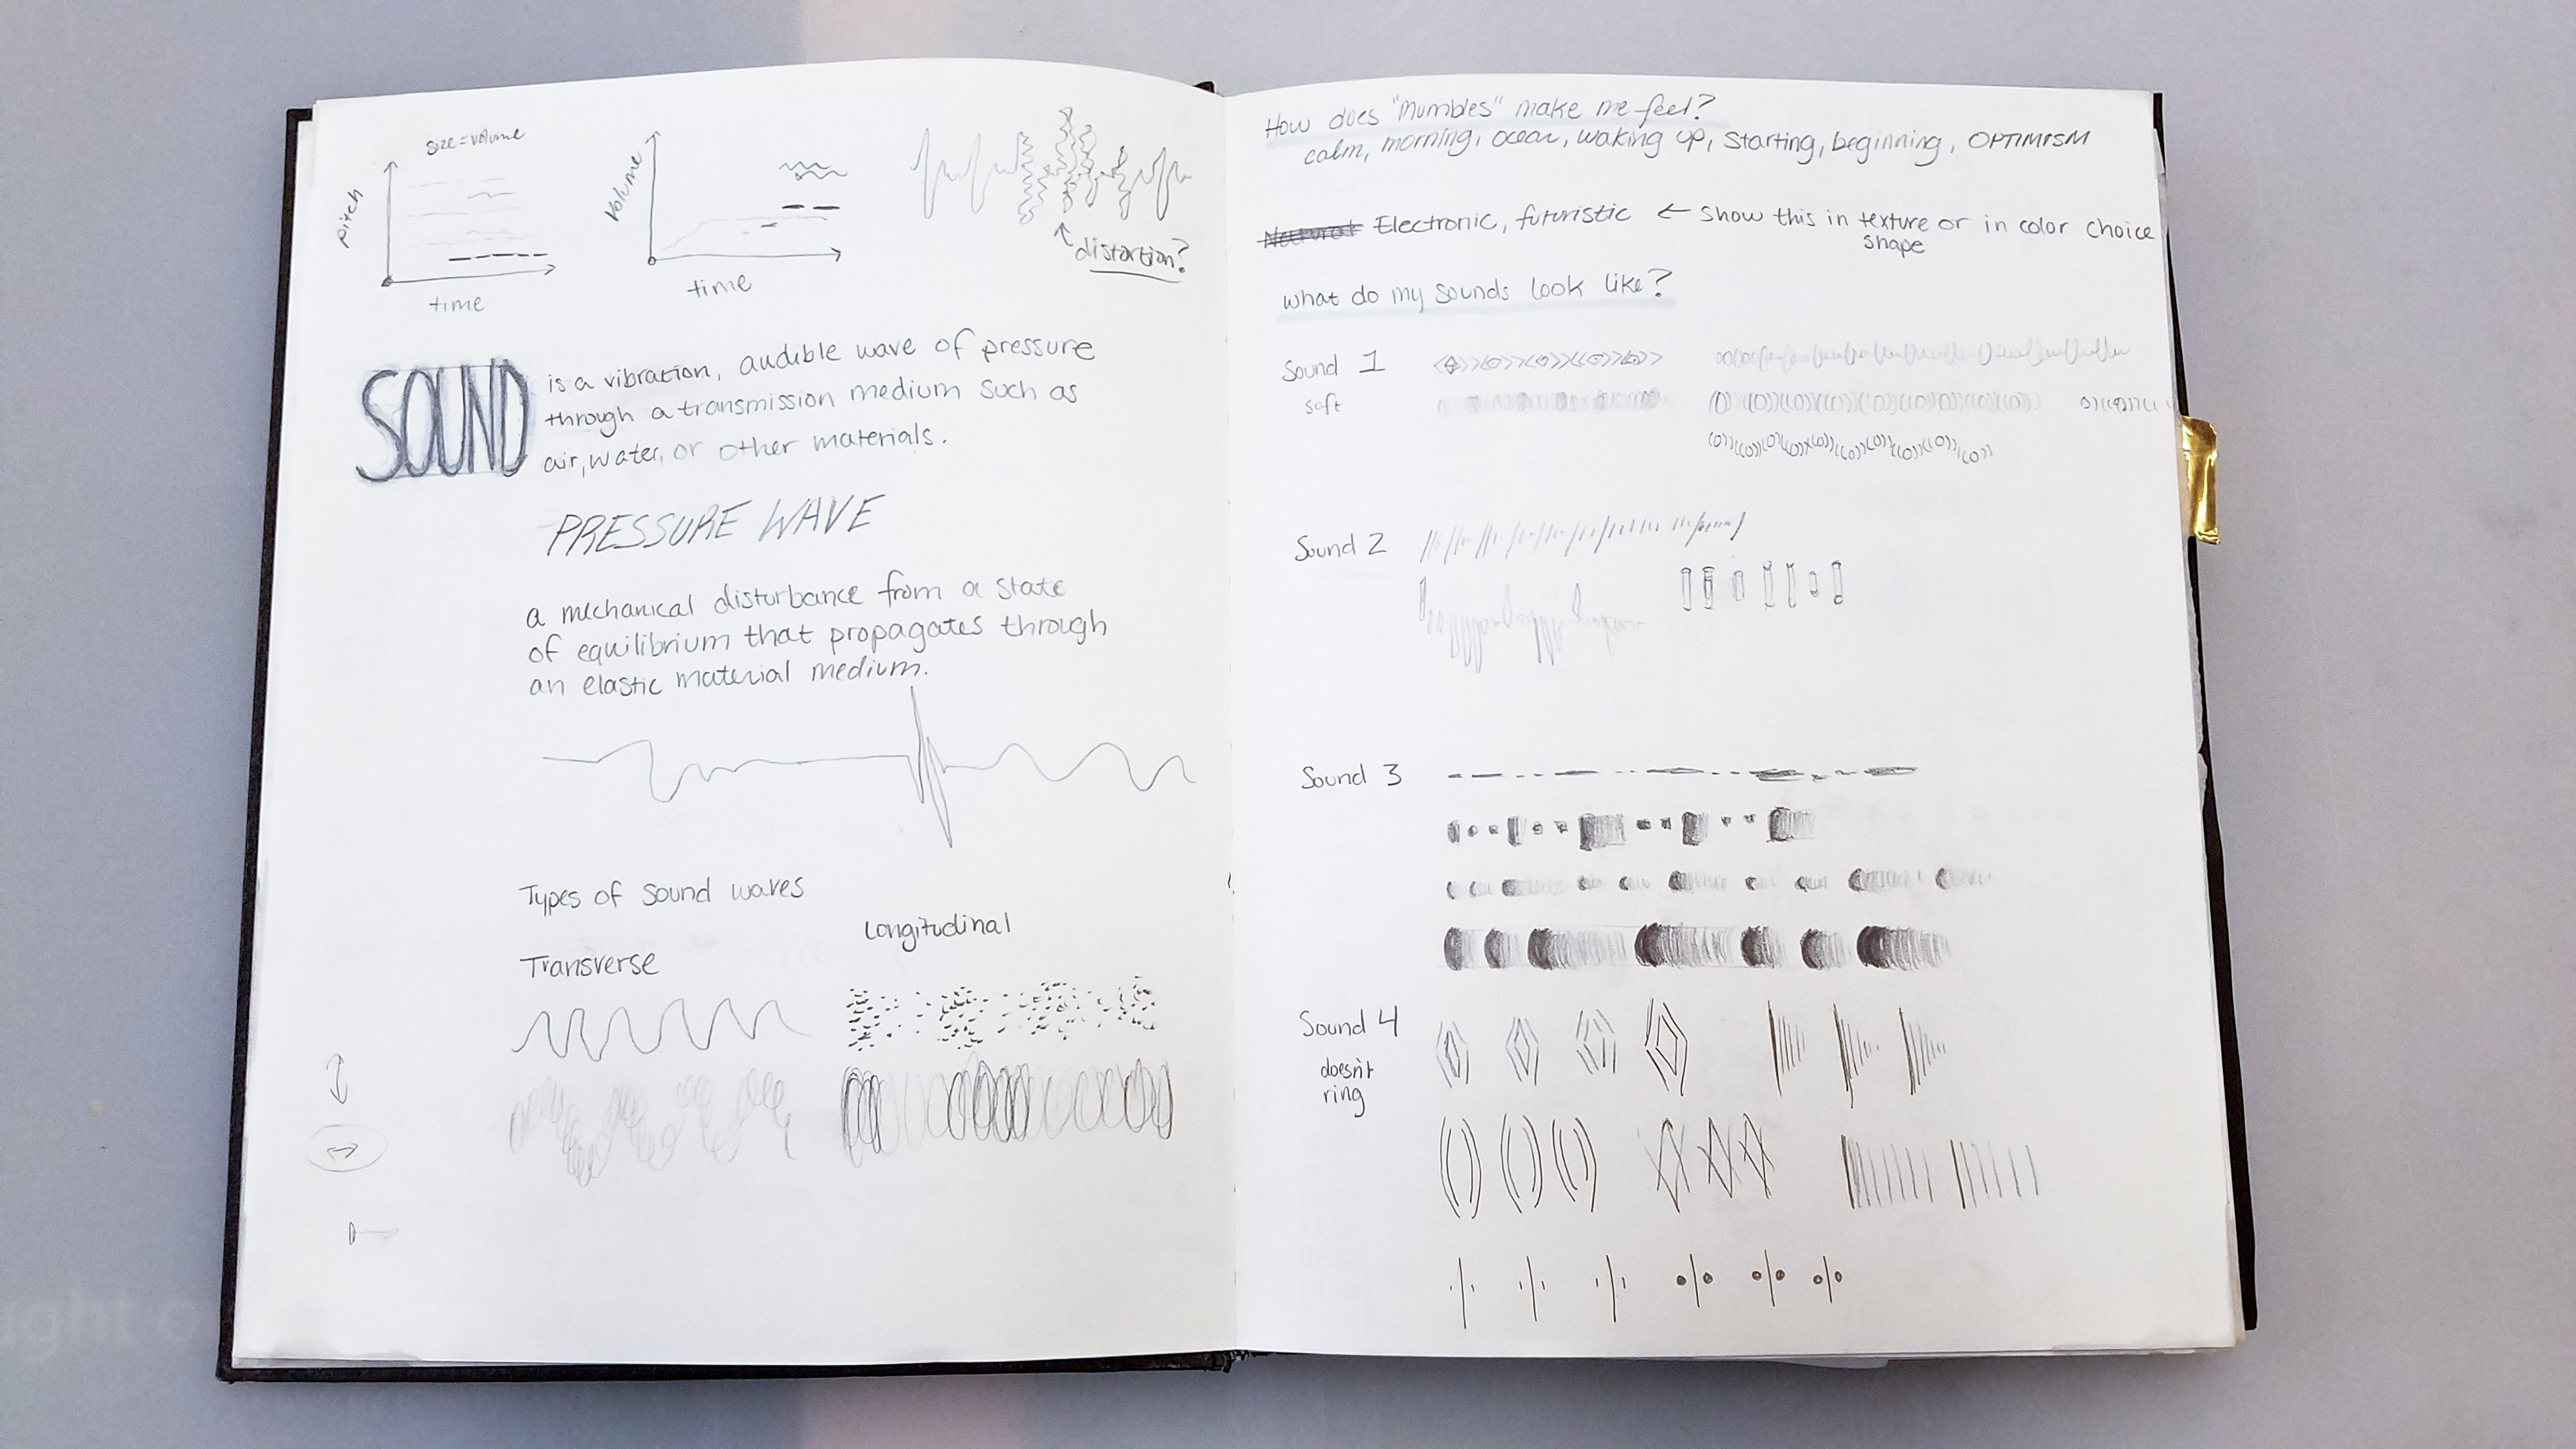 size = volume
pitch
time
Volume
time
distortion?
SOUND is a vibration, audible wave of pressure
through a transmission medium such as
air, water, or other materials.
PRESSURE WAVE
a mechanical disturbance from a state
of equilibrium that propagates through
an elastic material medium.
Types of sound waves
Longitudinal
Transverse
How does "Mumbles" make me feel?
calm, morning, ocean, waking up, starting, beginning, OPTIMISM
Natural Electronic, futuristic ← show this in texture or in color choice
shape
what do my sounds look like?
Sound 1
soft
Sound 2
Sound 3
Sound 4
doesn't
ring